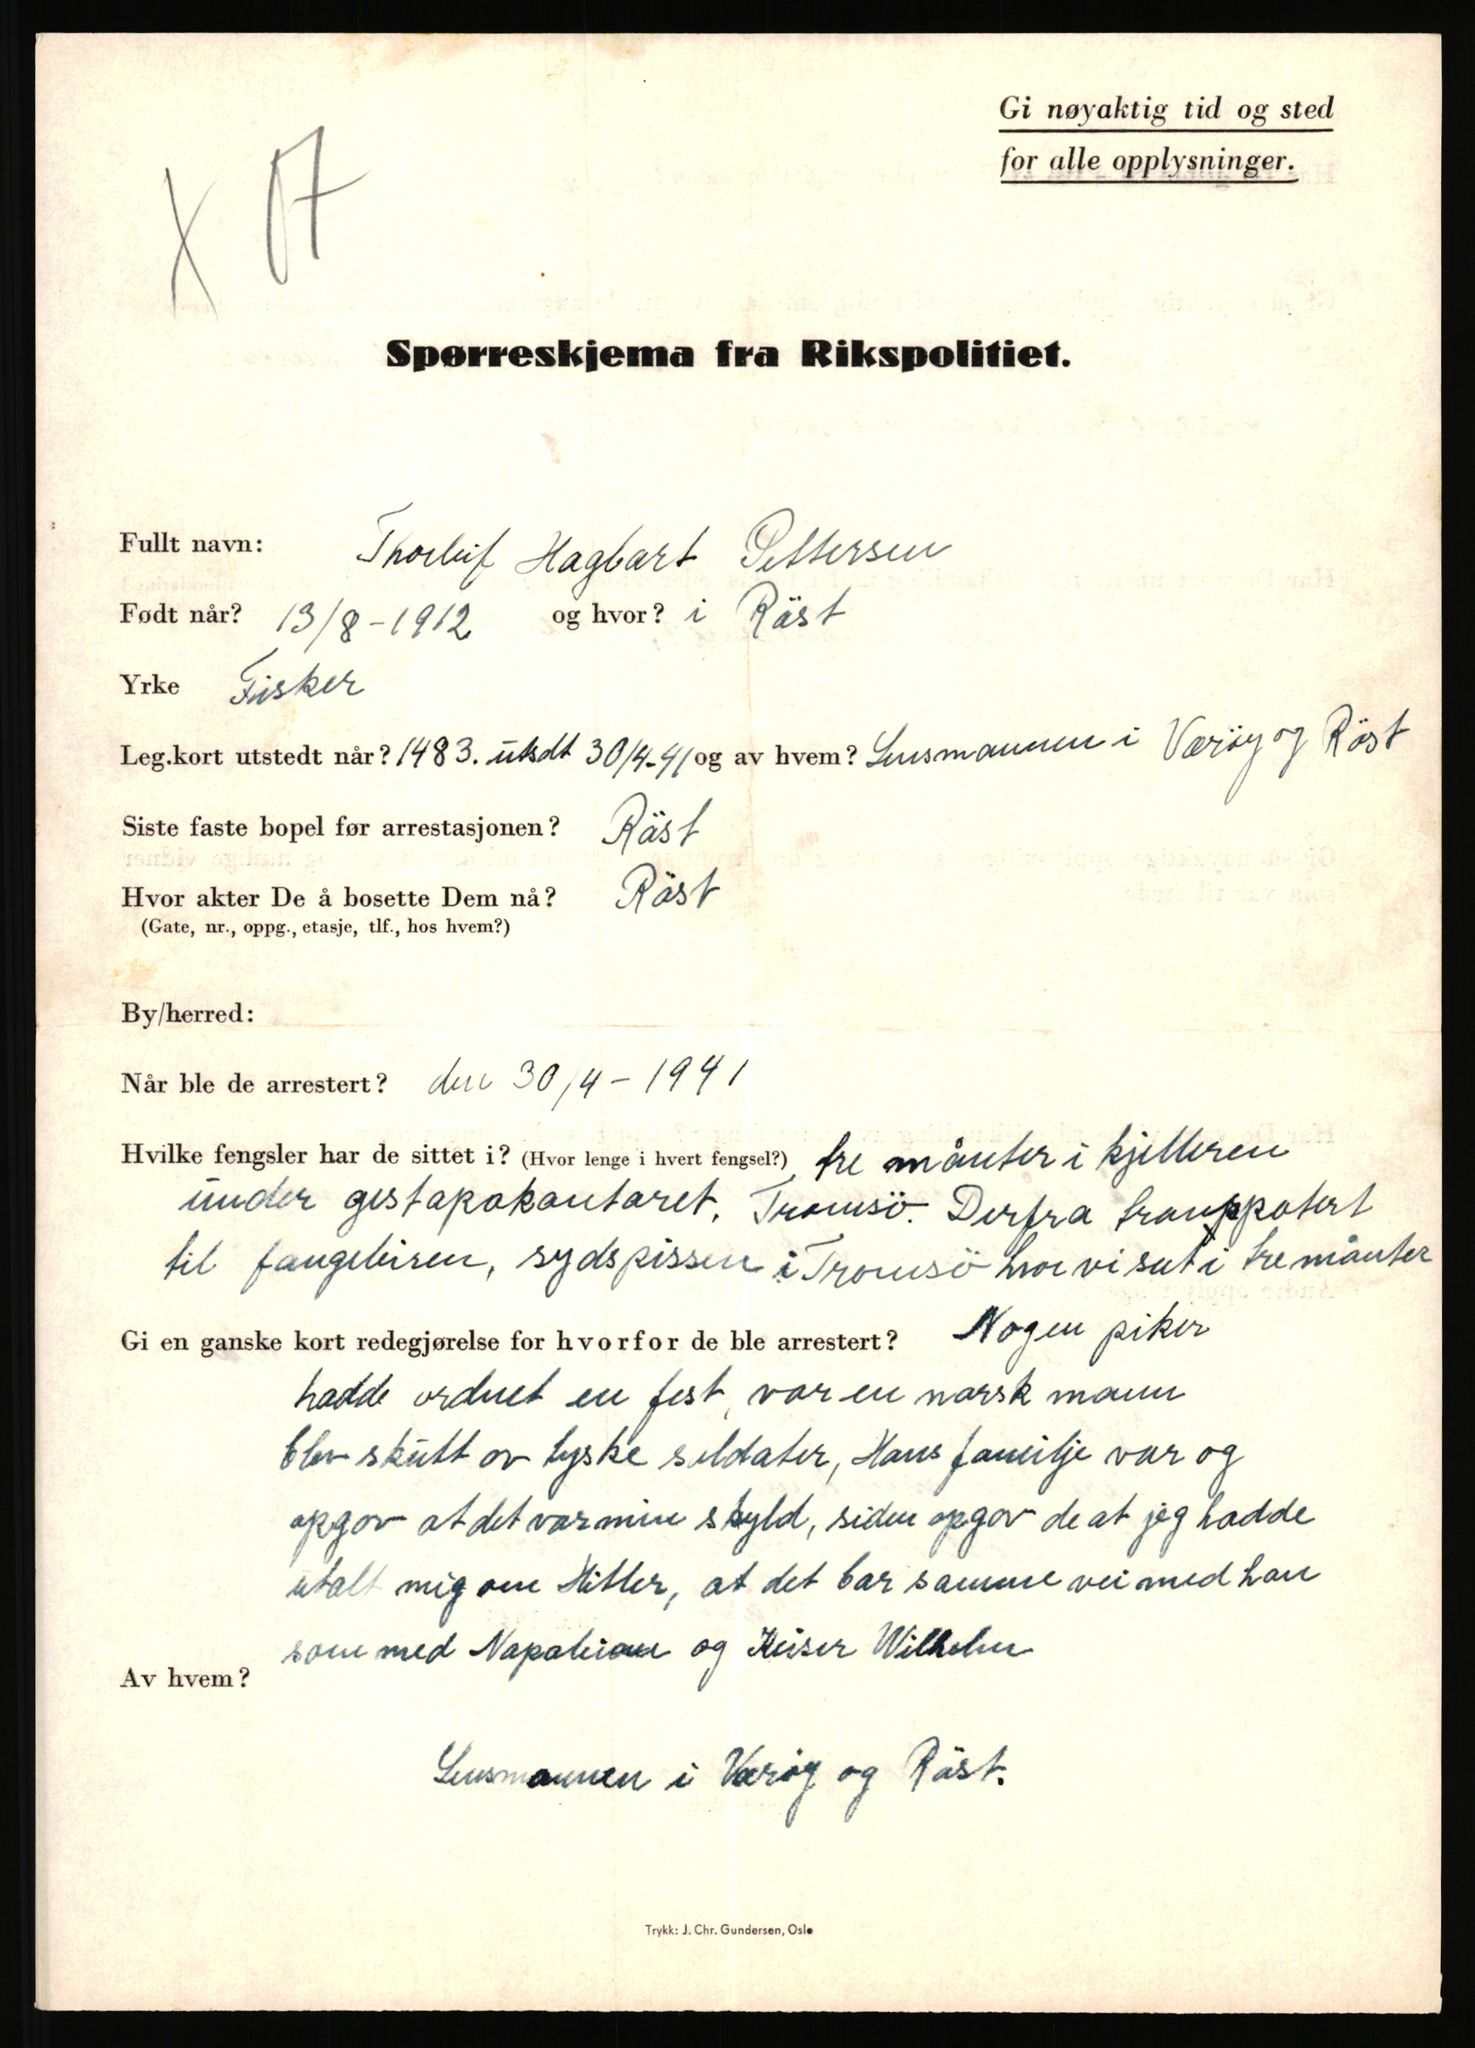 Gi nøyaktig tid og sted
for alle opplysninger.
X A
Spørreskjema fra Rikspolitiet.
Fullt navn: Thorleif Hagbart Pettersen
Født når? 13/8-1912 og hvor? i Röst
Yrke Fisker
Leg.kort utstedt når? 1483. utsdt 30/4-41 og av hvem? Lensmannen i Værøy og Röst
Siste faste bopel før arrestasjonen? Röst
Hvor akter De å bosette Dem nå? Röst
(Gate, nr., oppg., etasje, tlf., hos hvem?)
By/herred:
Når ble de arrestert? den 30/4-1941
Hvilke fengsler har de sittet i? (Hvor lenge i hvert fengsel?) tre månter i kjelleren
under gestapokontoret, Tromsö. Derfra
til fangeleiren, sydspissen i Tromsö hvor vi sat i tre månter
Gi en ganske kort redegjørelse for hvorfor de ble arrestert? Nogen piker
hadde ordnet en fest, var en norsk mann
blev skutt av tyske soldater, Hans familje var og
opgov at det var min skyld, siden opgov de at jeg hadde
utalt mig om Hitler, at det bar samme vei med han
som med Napoleon og Keiser Wilhelm
Av hvem?
Lensmannen i Værøy og Röst.
Trykk: J. Chr. Gundersen, Oslo